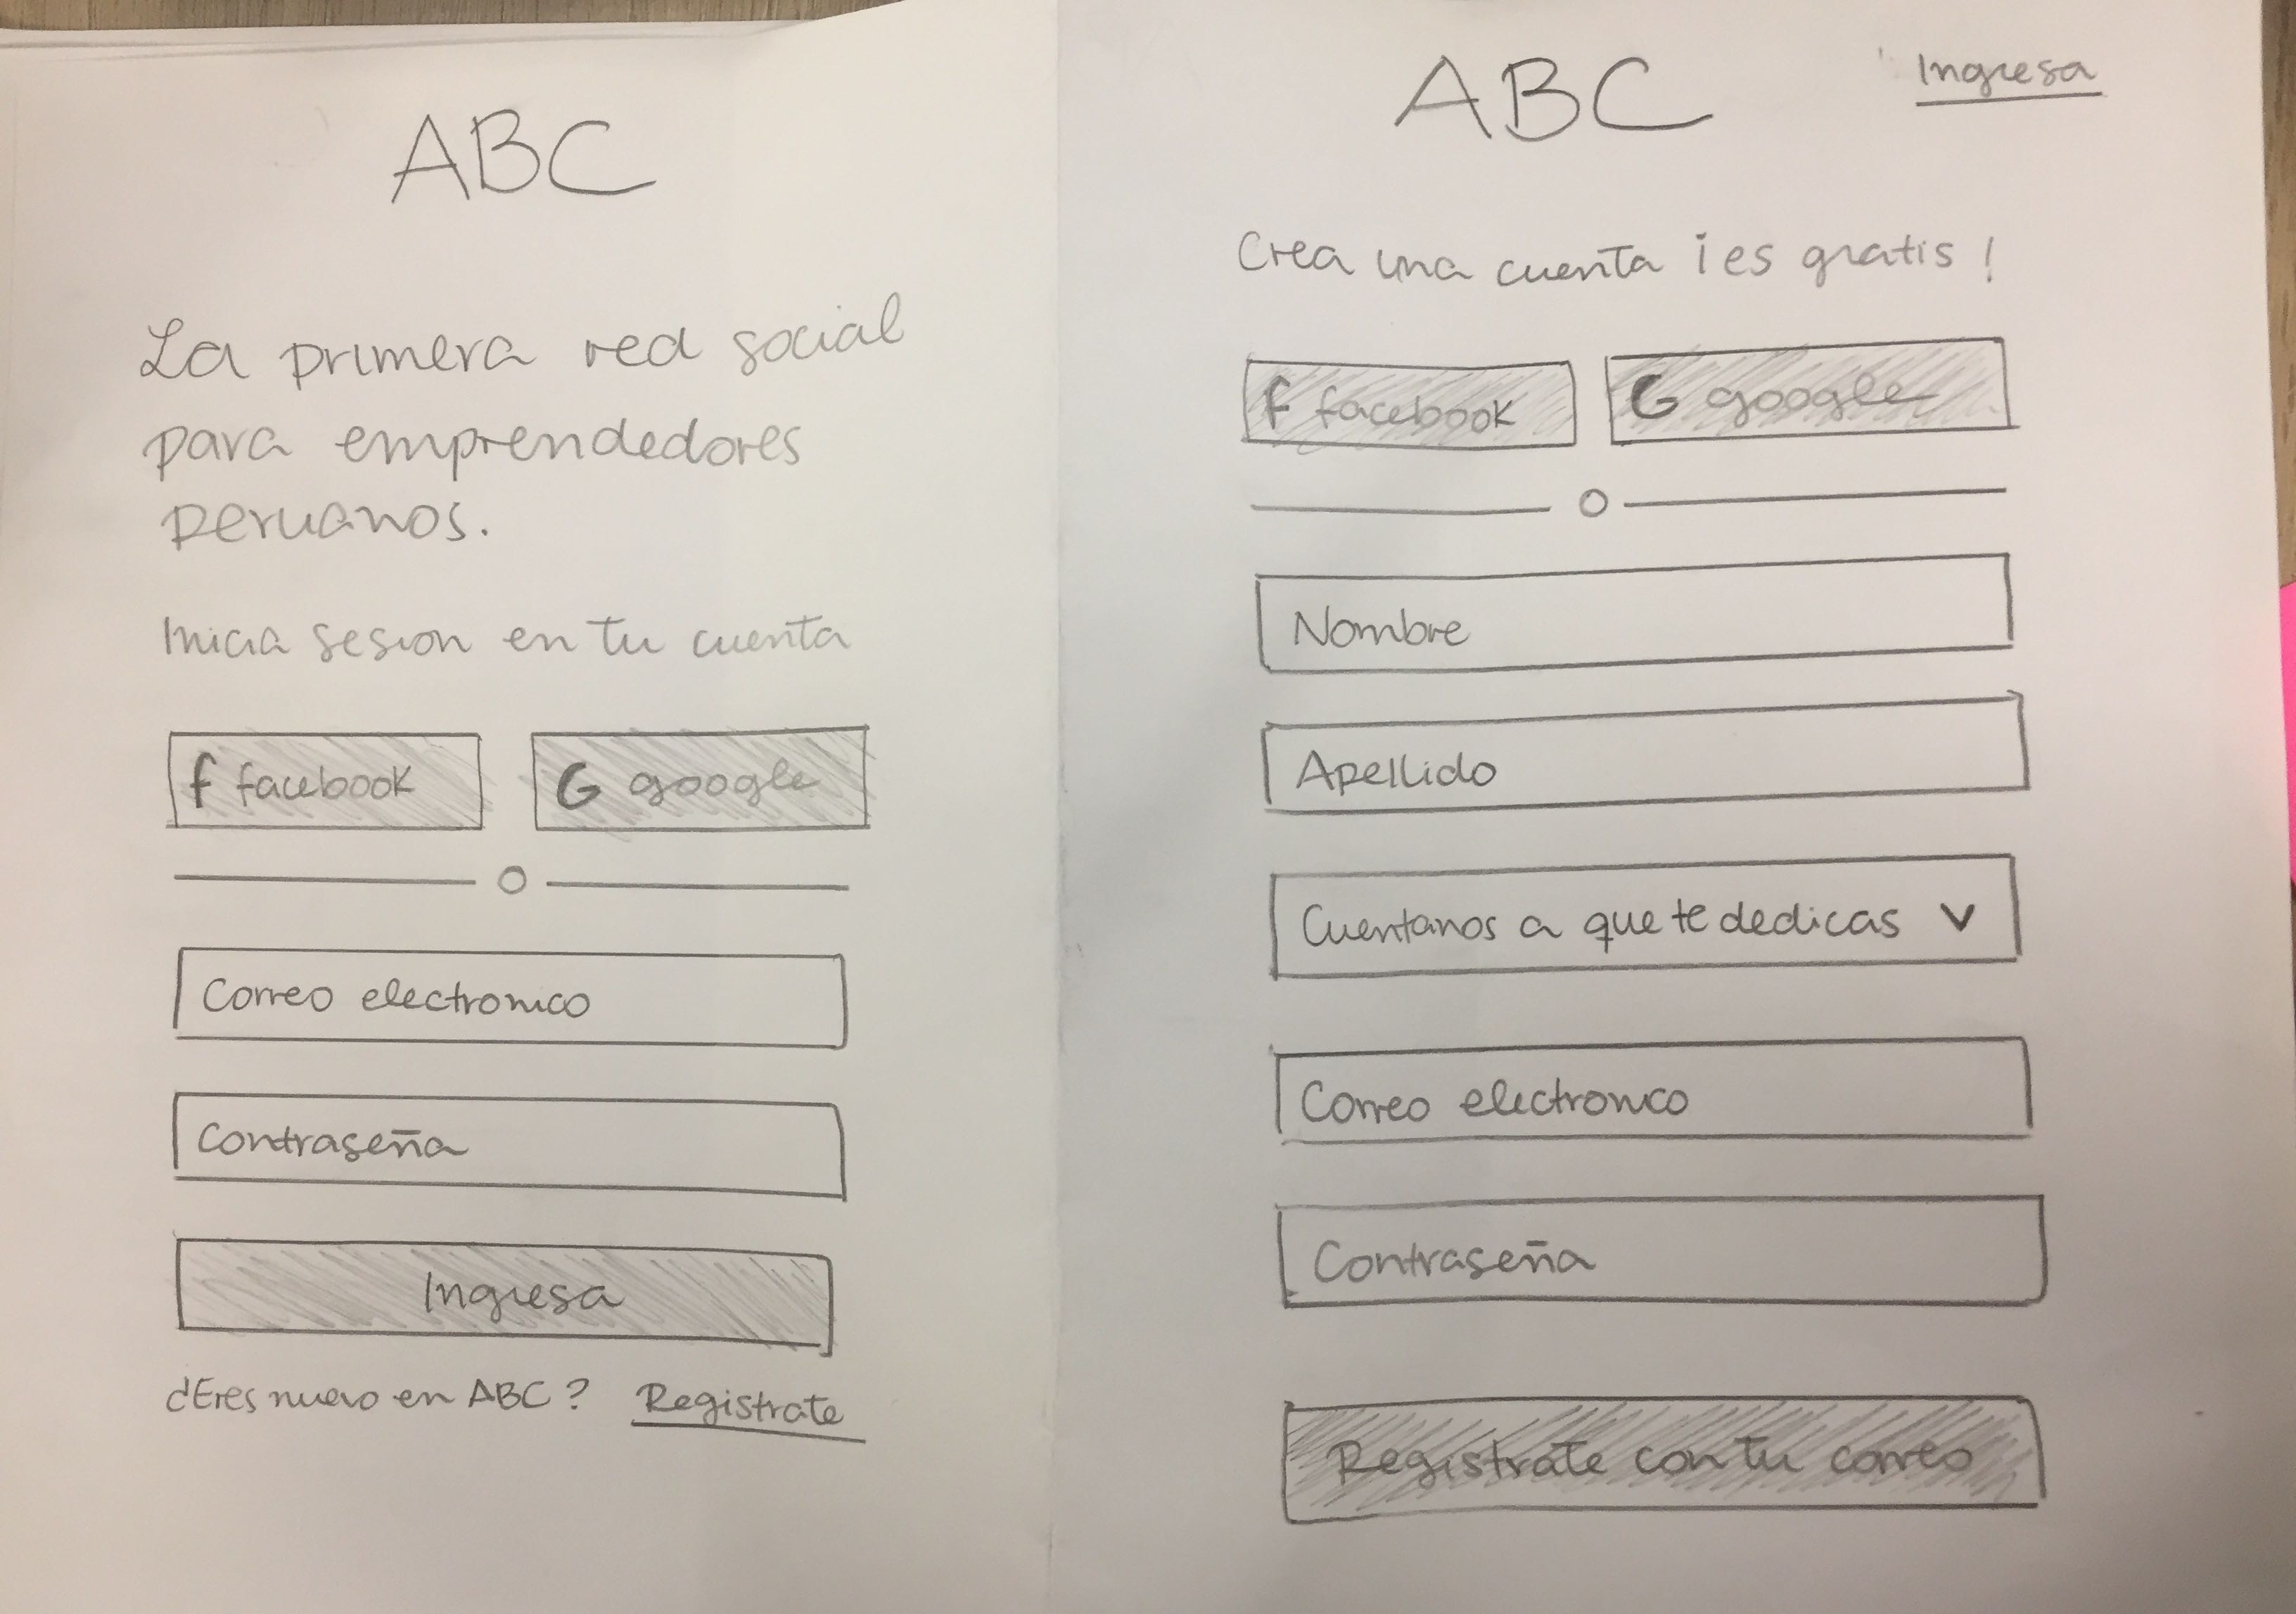 ABC
La primera red social
para emprendedores
peruanos.
Inicia sesion en tu cuenta
f facebook
G google
O
Correo electronico
Contraseña
Ingresa
¿Eres nuevo en ABC? Registrate
ABC
Ingresa
Crea una cuenta ¡es gratis!
f facebook
G google
O
Nombre
Apellido
Cuentanos a que te dedicas V
Correo electronico
Contraseña
Registrate con tu correo